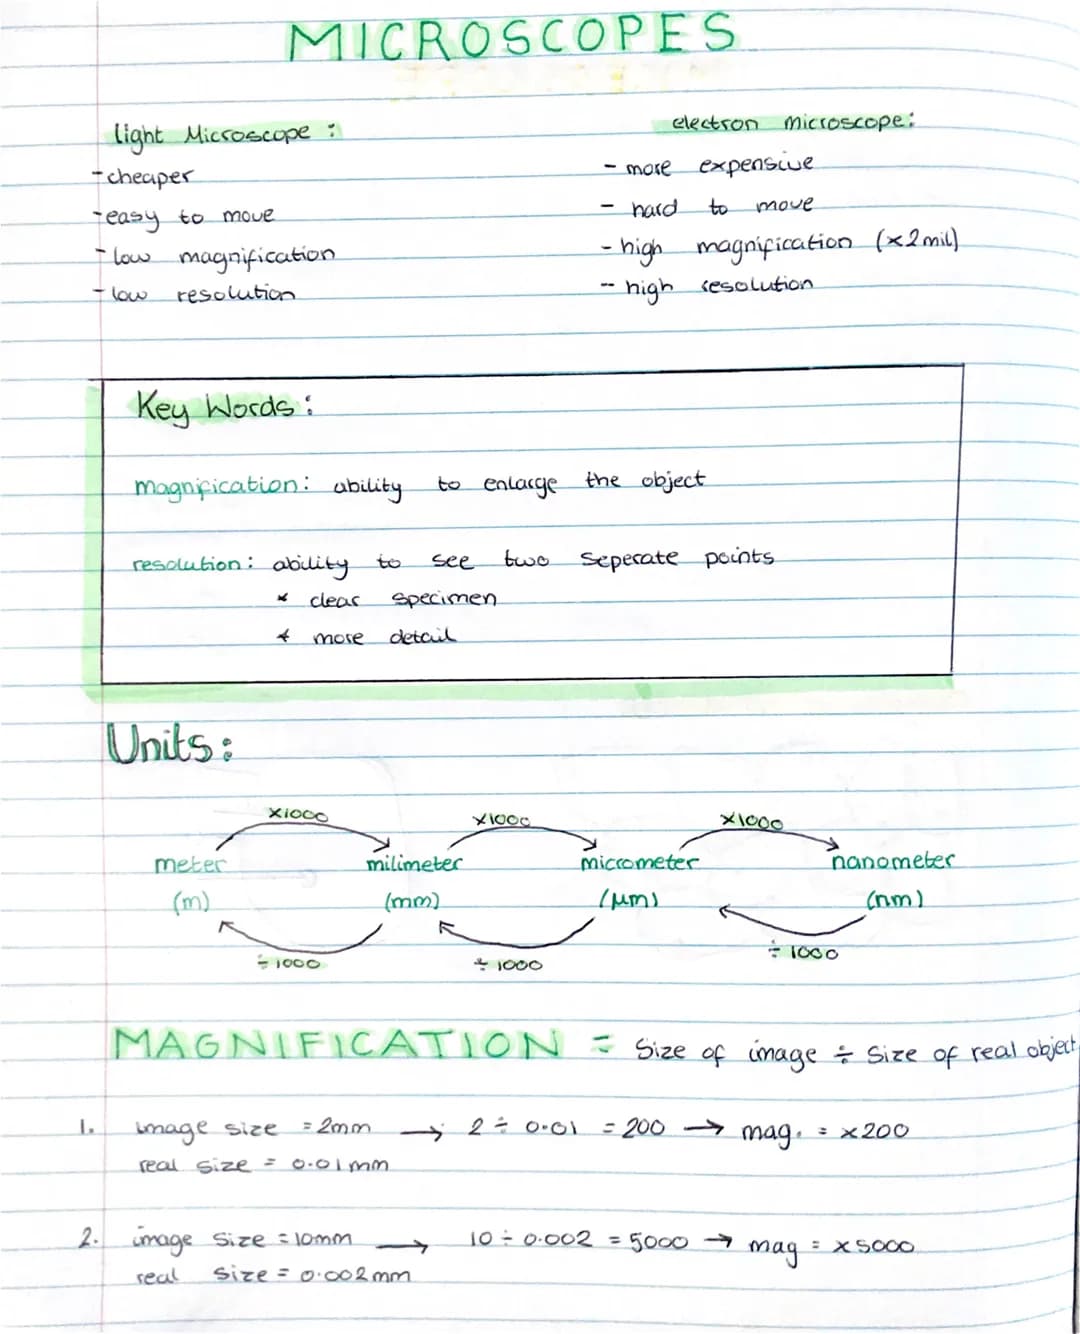 MICROSCOPES
light Microscope :
-cheaper
-easy to move
-low magnification
-low resolution
electron microscope:
- more expensive
- hard to move
- high magnification (x2mil)
- high resolution
Key Words :
magnification: ability to enlarge the object
resolution: ability to see two seperate points
* clear specimen
* more detail
Units :
x1000 x1000 x1000
meter milimeter micrometer nanometer
(m) (mm) (μm) (nm)
÷1000 ÷1000 ÷1000
MAGNIFICATION = Size of image ÷ Size of real object
1. image size = 2mm → 2 ÷ 0.01 = 200 → mag. = x200
real size = 0.01mm
2. image size = 10mm → 10 ÷ 0.002 = 5000 → mag = x5000
real size = 0.002mm